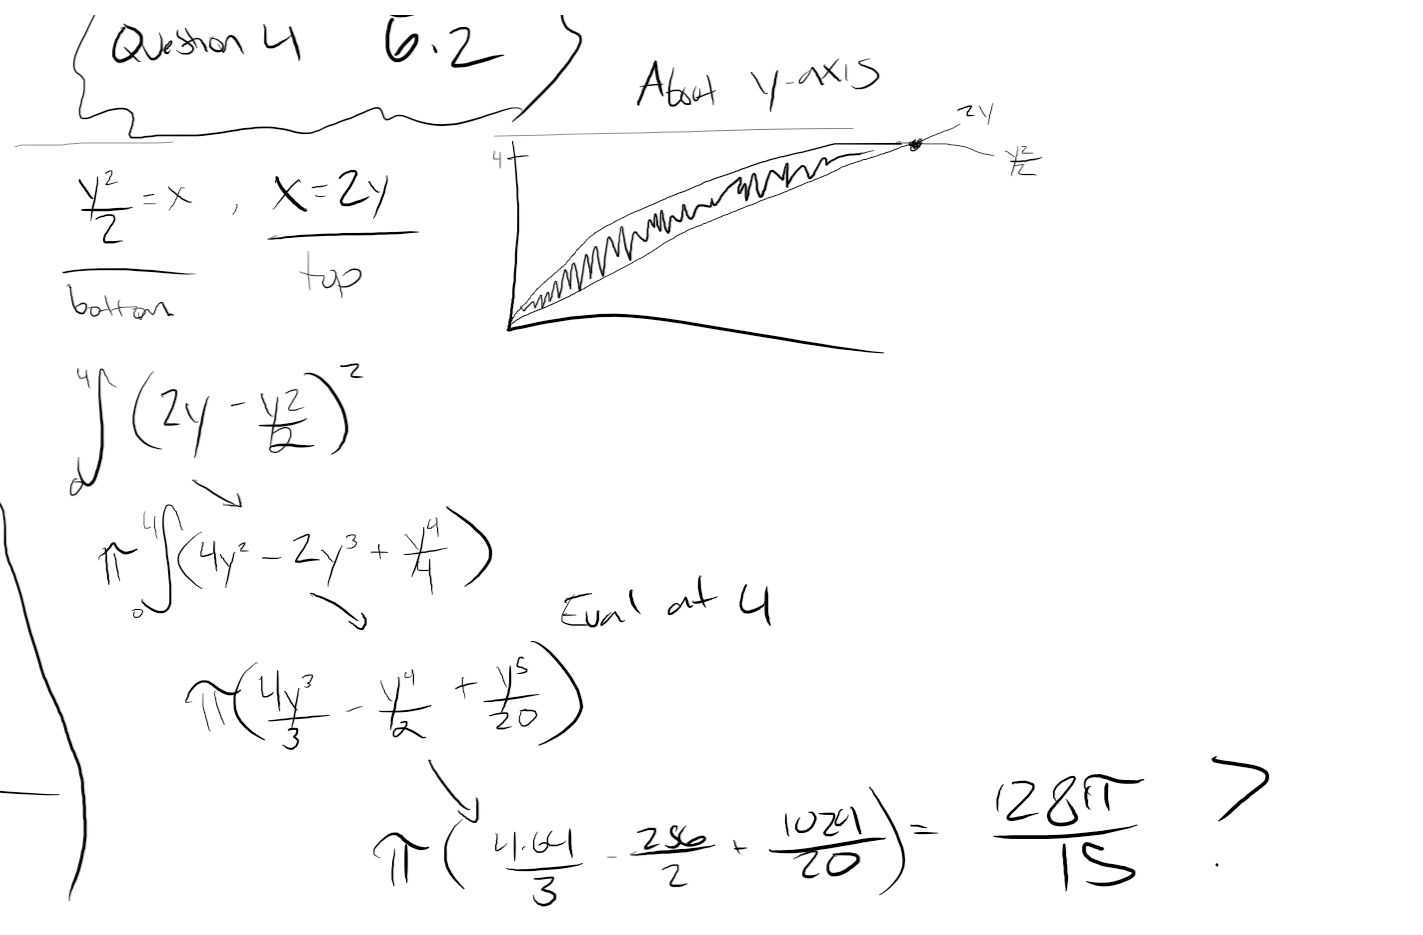 Question 4 6.2
About y-axis
y²/2 = x , x = 2y
bottom top
4
2y
y²/2
∫₀⁴ (2y - y²/2)²
π ∫₀⁴ (4y² - 2y³ + y⁴/4)
Eval at 4
π (4y³/3 - y⁴/2 + y⁵/20)
π (4·64/3 - 256/2 + 1024/20) = 128π/15 ?